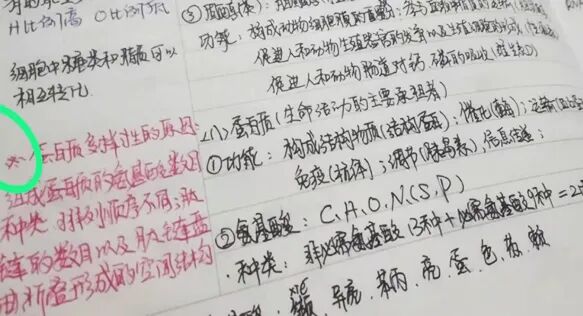 H比例高 O比例低
细胞中糖类和脂质可以
相互转化.
* 蛋白质多样性的原因:
组成蛋白质的氨基酸数目
种类、排列顺序不同;肽
链的数目以及肽链盘
曲折叠形成的空间结构
功能: 构成动物细胞膜的重要成分;参与血液中脂质的运输
促进人和动物生殖器官的发育以及生殖细胞的形成
促进人和动物肠道对钙、磷的吸收(维生素D)
(八)蛋白质(生命活动的主要承担者)
①功能: 构成结构物质(结构蛋白);催化(酶);运输
免疫(抗体);调节(胰岛素);信息传递;
②氨基酸: C.H.O.N(S.P)
·种类: 非必需氨基酸13种+必需氨基酸8种=21
缬、异亮、苯丙、亮、蛋、色、苏、赖